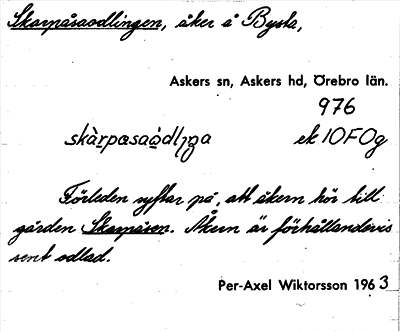 Skarpåsaodlingen, åker å Bysta,
Askers sn, Askers hd, Örebro län.
976
ek 10FOg
Förleden syftar på, att åkern hör till
gården Skarpåsen. Åkern är förhållandevis
sent odlad.
Per-Axel Wiktorsson 1963